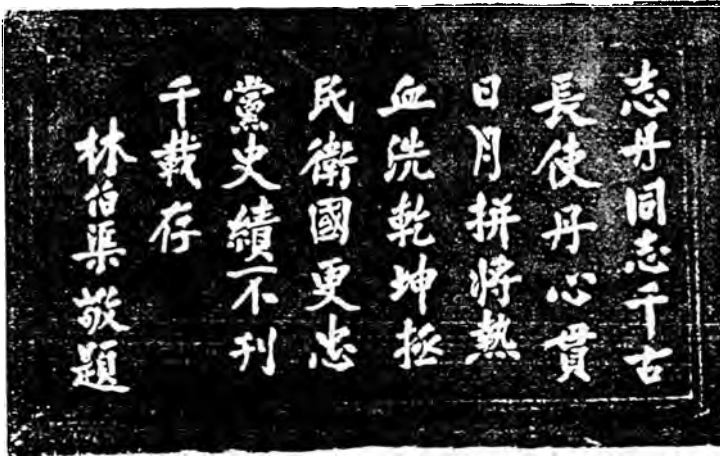 志丹同志千古
長使丹心貫
日月拼將熱
血洗乾坤拯
民衛國更忠
黨史績不刊
千載存
林伯渠敬題